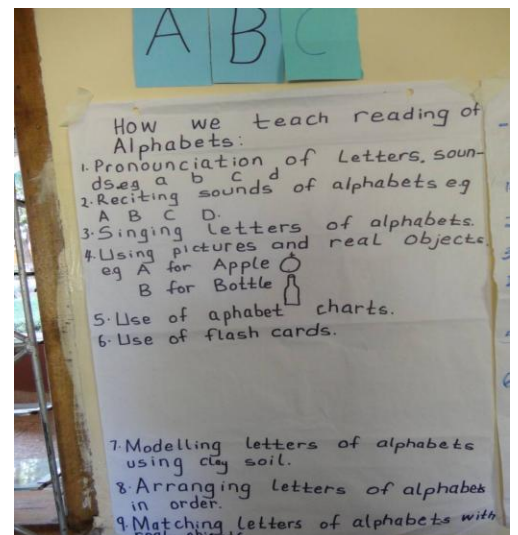 A B C
How we teach reading of
Alphabets:
1. Pronounciation of Letters, soun-
ds. eg a b c d
2. Reciting sounds of alphabets e.g
A B C D.
3. Singing Letters of alphabets.
4. Using pictures and real objects,
eg A for Apple
B for Bottle
5. Use of aphabet charts.
6. Use of flash cards.
7. Modelling letters of alphabets
using clay soil.
8. Arranging letters of alphabets
in order.
9. Matching letters of alphabets with